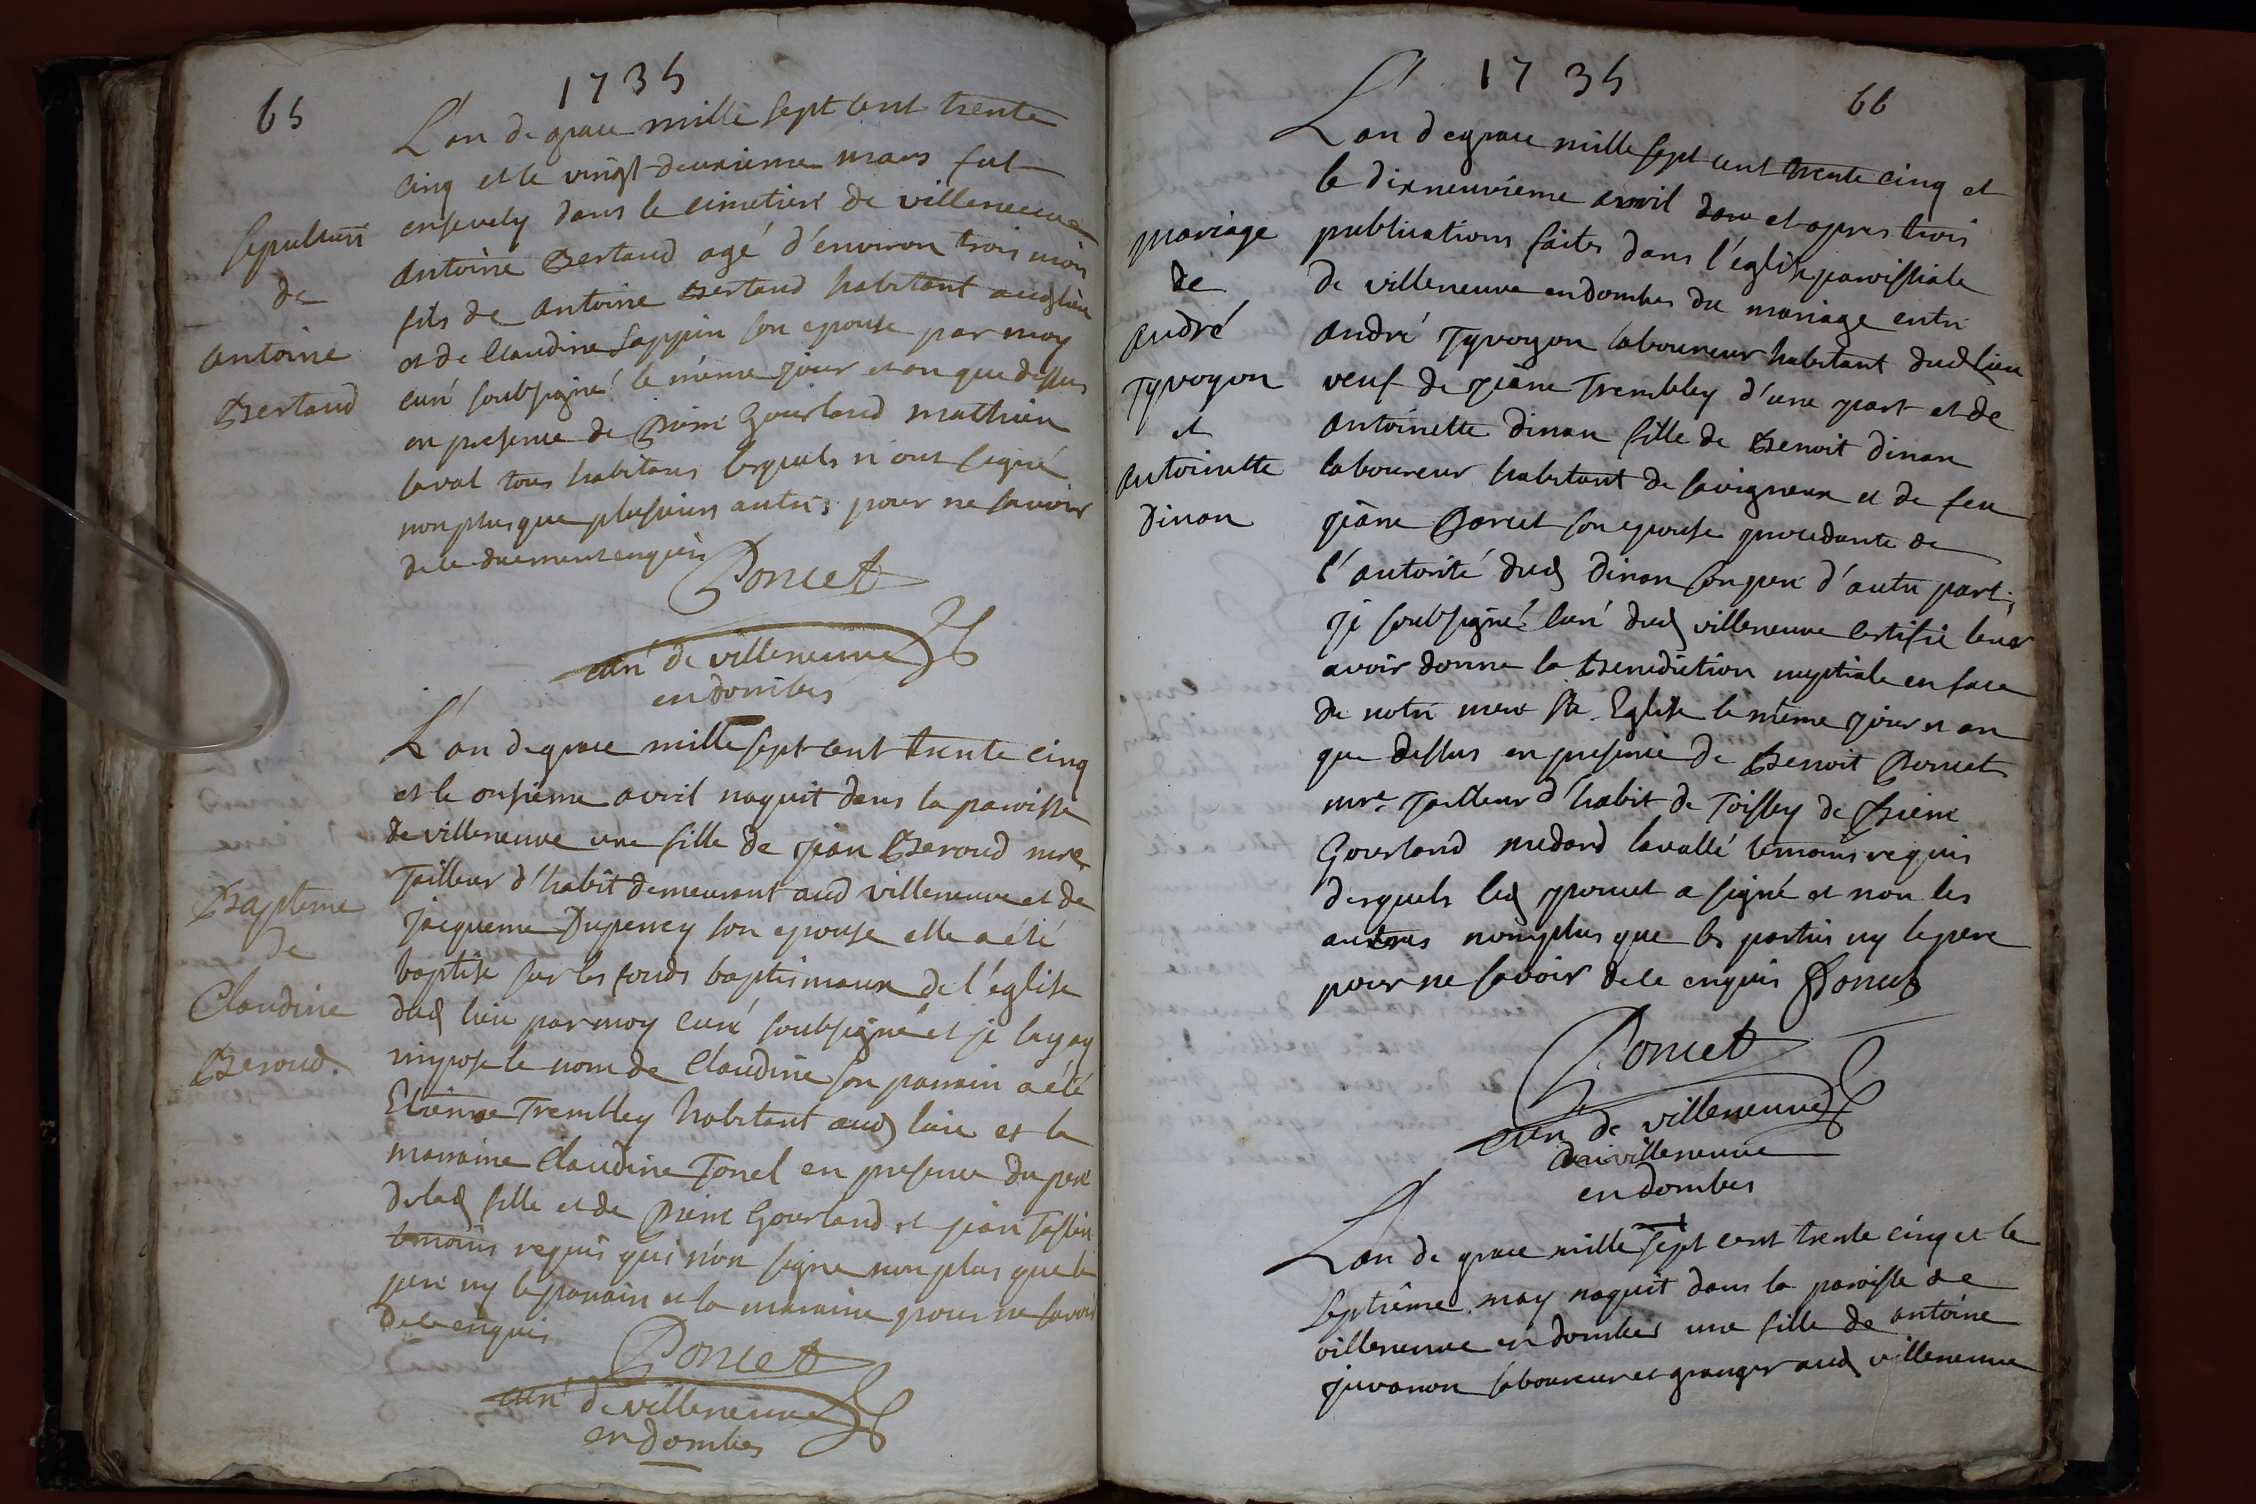 65
1735
L'an de grace mille sept cent trente
cinq et le vingt deuxieme mars fut
ensevely dans le cimetiere de villeneuve
antoine Bertaud agé d'environ trois mois
fils de antoine Bertaud habitant audlieu
et de Claudine Sappin son epouse par moy
curé soubsigné le même jour et an que dessus
en presence de Pierre Gourland mathieu
laval tous habitans lesquels n'ont signé
non plus que plusieurs autres pour ne savoir
de ce duement enquis
Poncet
curé de villeneuve
en dombes
sepulture
de
antoine
Bertaud
L'an de grace mille sept cent trente cinq
et le onsieme avril naquit dans la paroisse
de villeneuve une fille de jean Beroud mre
Tailleur d'habit demeurant aud villeneuve et de
jacqueme Dupency son epouse elle a été
baptise sur les fonds baptismaux de l'eglise
dud lieu par moy curé soubsigné et je lay ay
impose le nom de Claudine son parrain a été
Etienne Trembley habitant aud lieu et la
marraine Claudine Tonel en presence du pere
de lad fille et de Pierre Gourland et jean
temoins requis qui n'on signe non plus que le
pere ny le parrain et la maraine pour ne savoir
de ce enquis
Poncet
curé de villeneuve
en dombes
Bapteme
de
Claudine
Beroud.
1735
66
L'an de grace mille sept cent trente cinq et
le dixneuvieme avril dans et apres trois
publications faites dans l'église paroissiale
de villeneuve en dombes du mariage entre
andré Tyvoyon laboureur habitant dud lieu
veuf de jeâne Trembley d'une part et de
antoinette dinan fille de Benoit dinan
laboureur habitant de savigneux et de feu
jeâne Porcet son epouse procedante de
l'autorité dud dinan son pere d'autre part,
je soubsigné curé dud villeneuve certifie leur
avoir donne la benediction nuptiale en face
de notre mere Ste Eglise le même jour et an
que dessus en presence de Benoit Poncet
mre Tailleur d'habit de Toissey de Pierre
Gourland medard lavallé temoins requis
desquels led poncet a signé et non les
autres nomplus que les parties ny le pere
pour ne savoir de ce enquis Poncet
Poncet
curé de villeneuve
de villeneuve
en dombes
mariage
de
andré
Tyvoyon
et
antoinette
dinan
L'an de grace mille sept cent trente cinq et le
septieme may naquit dans la paroisse de
villeneuve en dombes une fille de antoine
juvanon laboureur et granger aud villeneuve